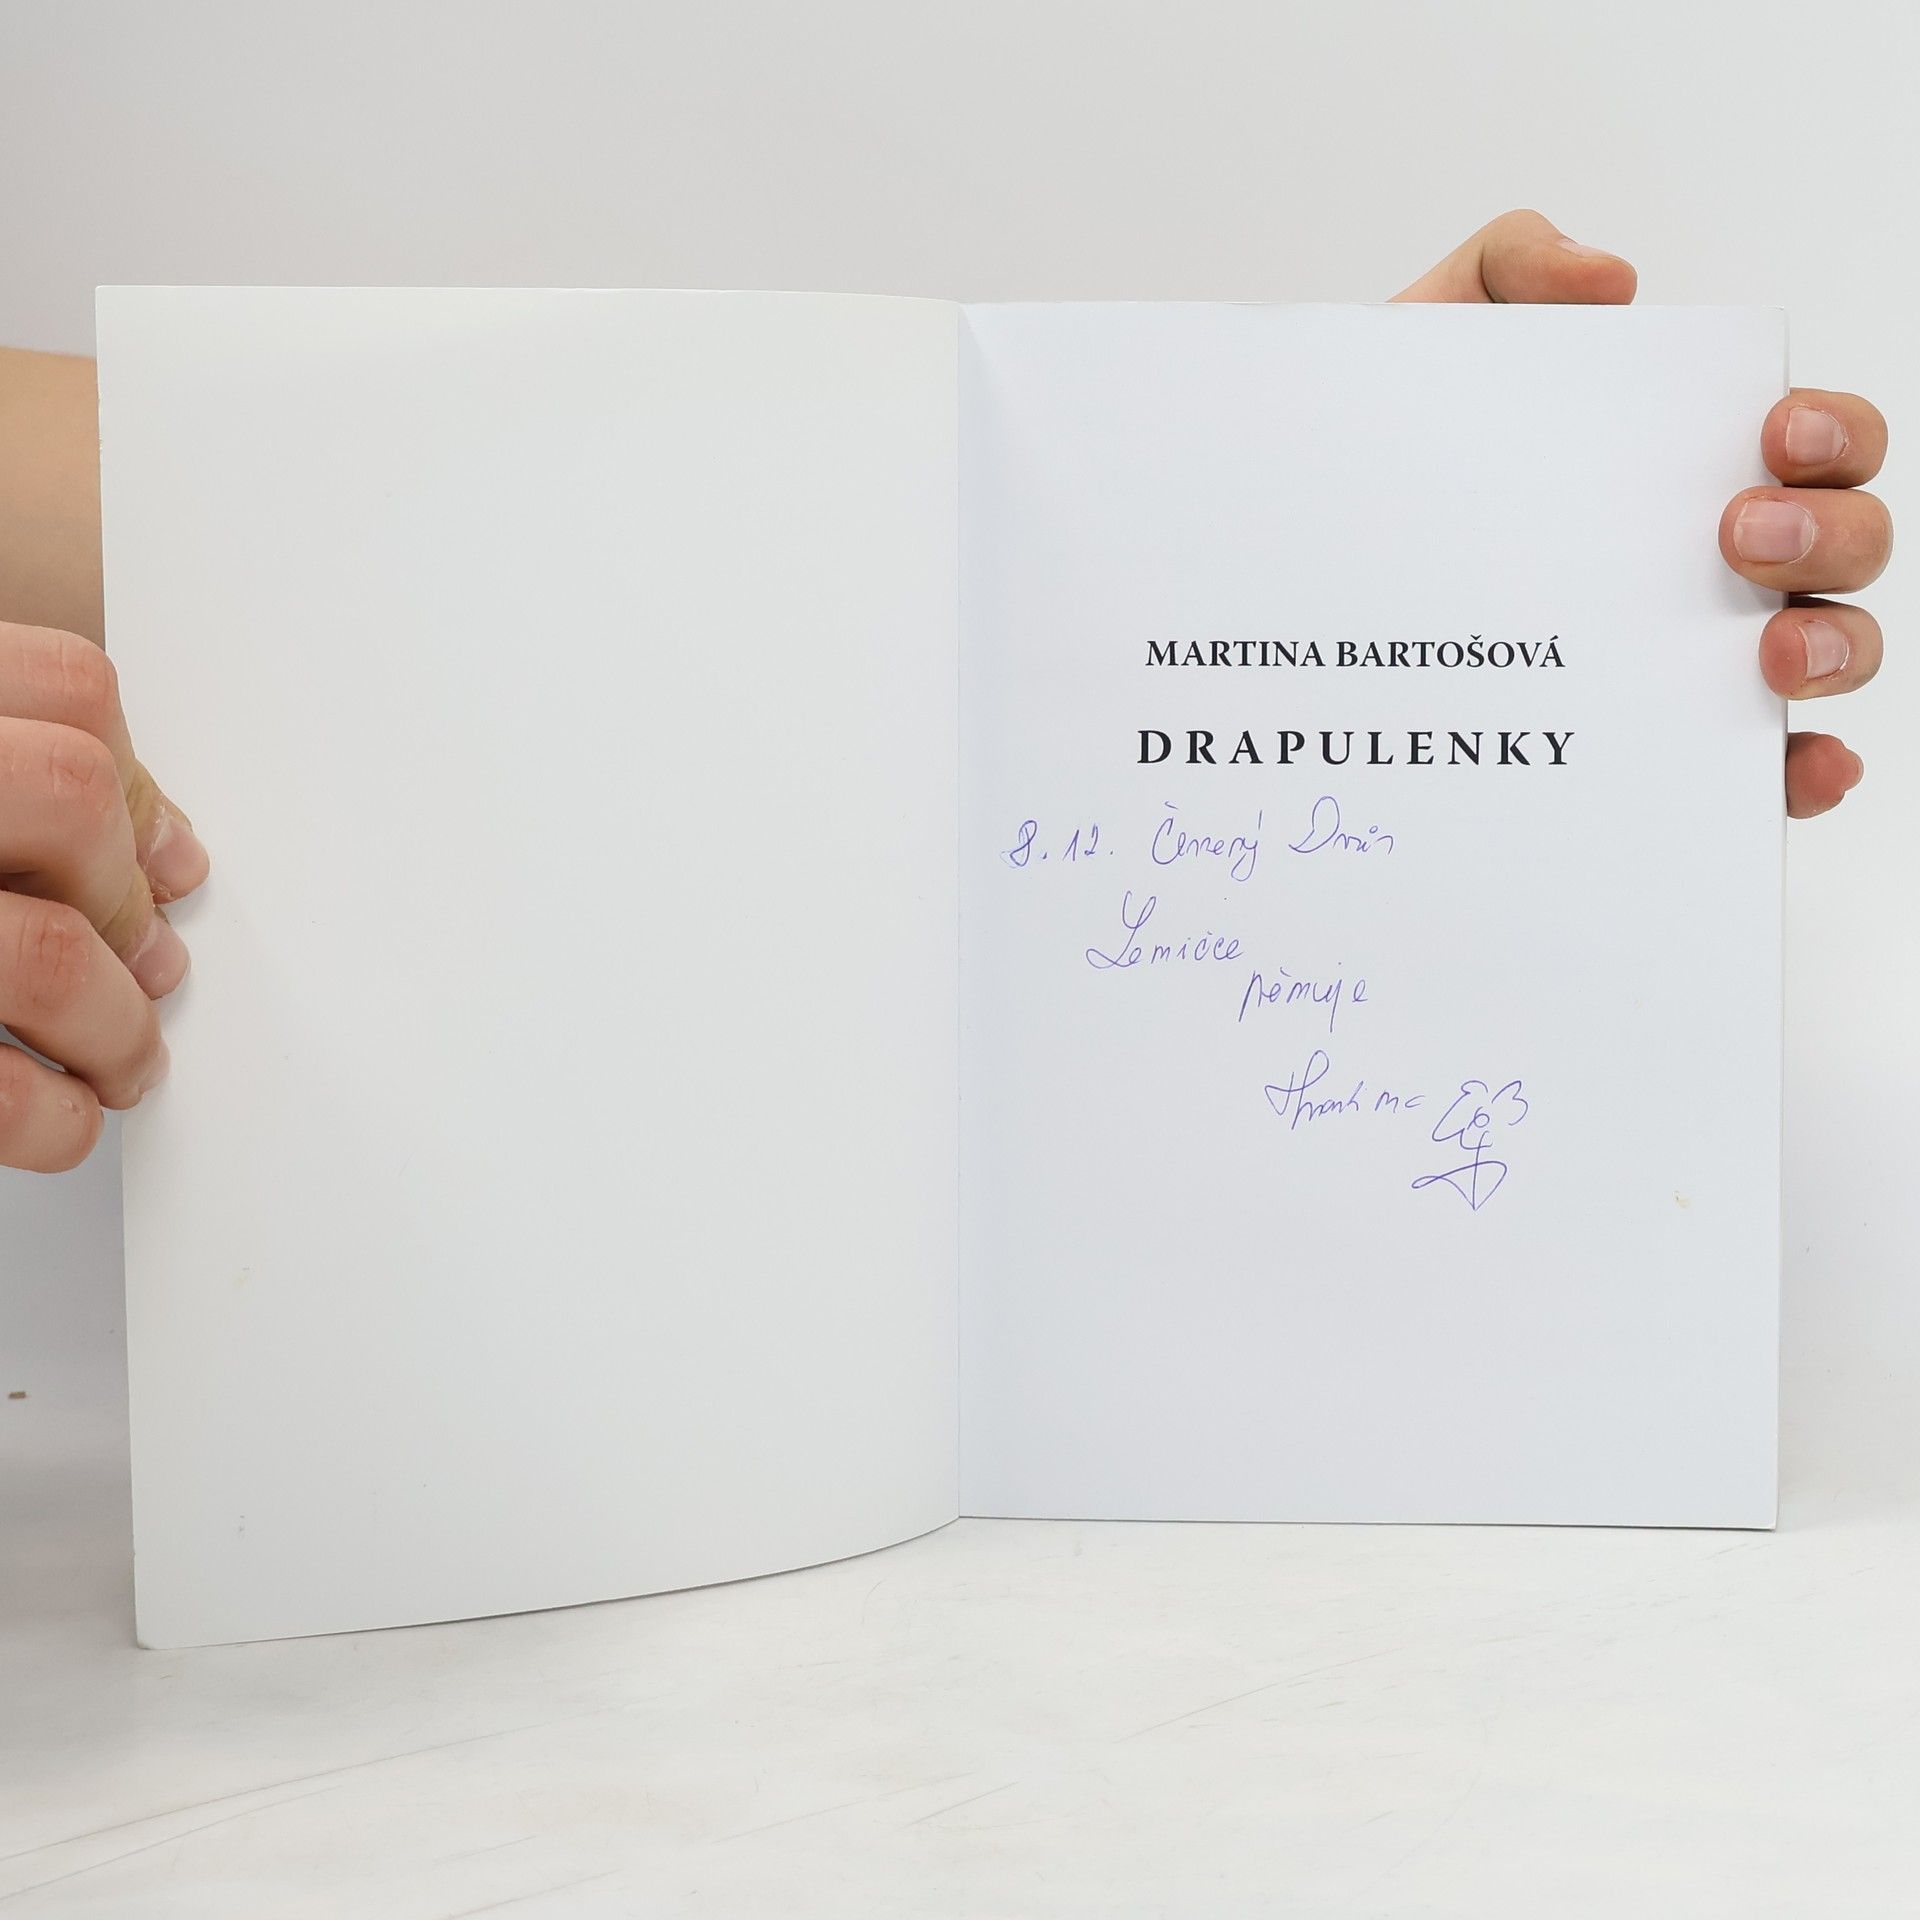 MARTINA BARTOŠOVÁ
DRAPULENKY
8.12. Červený Dvůr
věnuje
Martina